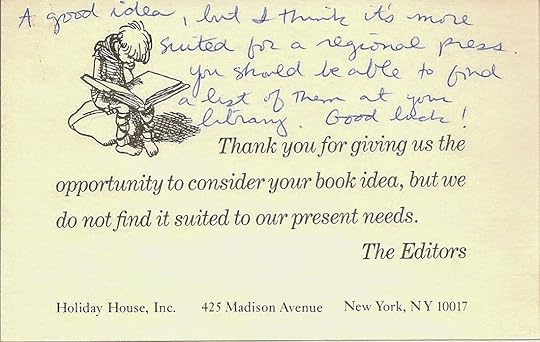 A good idea, but I think it's more
suited for a regional press.
you should be able to find
a list of them at your
library. Good luck!
Thank you for giving us the
opportunity to consider your book idea, but we
do not find it suited to our present needs.
The Editors
Holiday House, Inc. 425 Madison Avenue New York, NY 10017